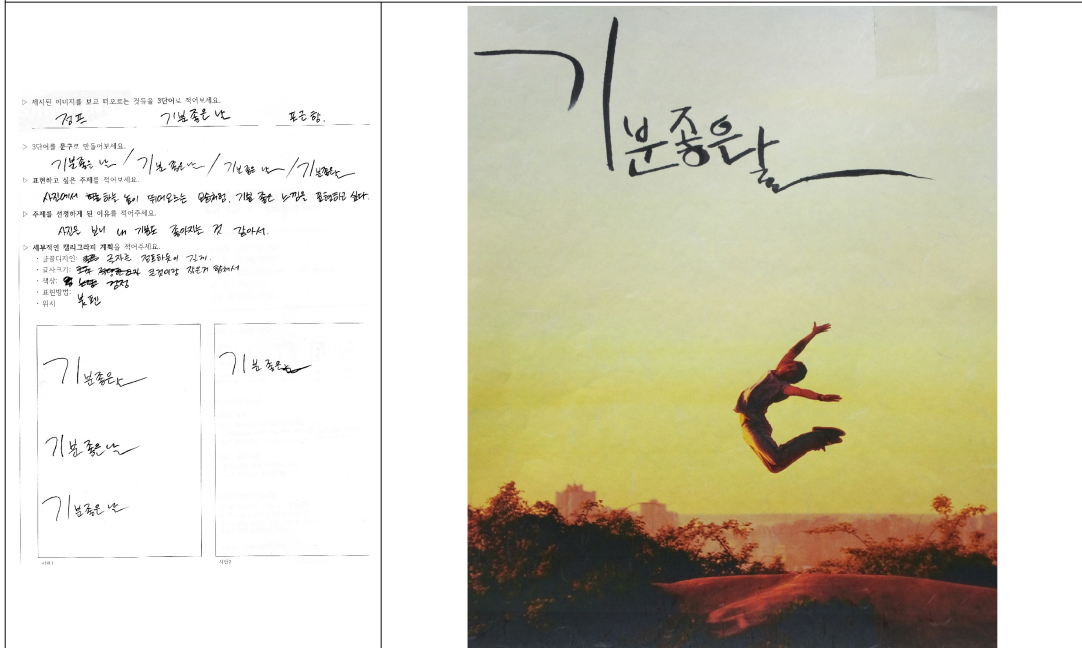 ▷ 제시된 이미지를 보고 떠오르는 것들을 3단어로 적어보세요.
점프 기분좋은 날 포근함.
▷ 3단어를 문구로 만들어보세요.
기분좋은 날 / 기분좋은 날 / 기분좋은 날 / 기분좋은날
▷ 표현하고 싶은 주제를 적어보세요.
사진에서 하는 높이 뛰어오르는 모습처럼, 기분 좋은 느낌을 표현하고 싶다.
▷ 주제를 선정하게 된 이유를 적어주세요.
사진을 보니 내 기분도 좋아지는 것 같아서.
▷ 세부적인 캘리그라피 계획을 적어주세요.
· 글꼴디자인: 글자를 점프하듯이 길게.
· 글씨크기: 작은거 합해서
· 색상: 검정
· 표현방법:
· 위치 붓펜
기분좋은날
기분좋은
기분좋은날
기분좋은날
시안1
시안2
기분좋은날